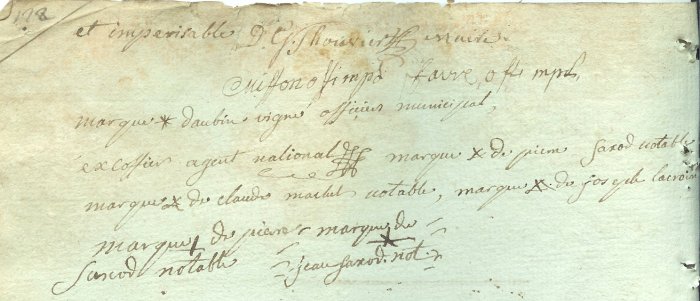 178
et imperisable D. G. Thouvier maire
Guiffon off mpl favre, off mpl,
marque x daubin vigne officier municipal,
excoffier agent national marque x de pierre saxod notable
marque x de claude machet notable, marque x de joseph lacroix
marque x de pierre marque de
saxod notable = jean saxod. not =